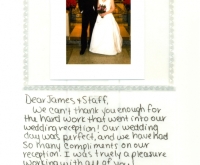 Dear James & Staff,
We can't thank you enough for
the hard work that went into our
wedding reception! Our wedding
day was perfect, and we have had
so many compliments on our
reception. It was truely a pleasure
working with all of you!